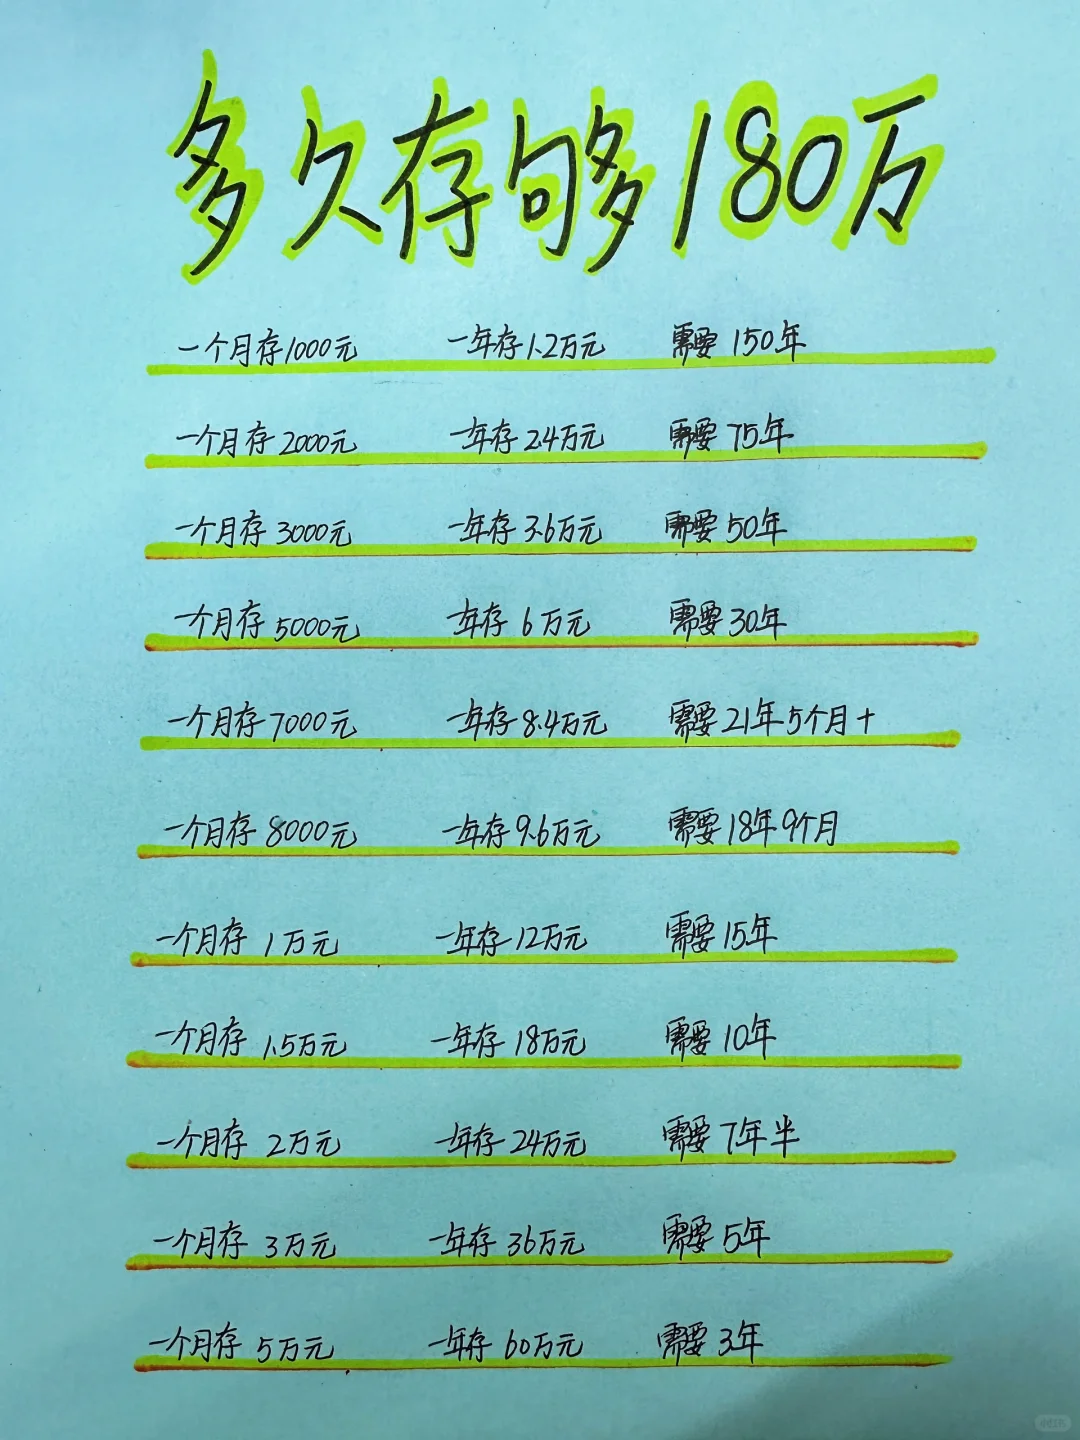 多久存够180万
一个月存1000元 一年存1.2万元 需要150年
一个月存2000元 一年存2.4万元 需要75年
一个月存3000元 一年存3.6万元 需要50年
一个月存5000元 一年存6万元 需要30年
一个月存7000元 一年存8.4万元 需要21年5个月+
一个月存8000元 一年存9.6万元 需要18年9个月
一个月存1万元 一年存12万元 需要15年
一个月存1.5万元 一年存18万元 需要10年
一个月存2万元 一年存24万元 需要7年半
一个月存3万元 一年存36万元 需要5年
一个月存5万元 一年存60万元 需要3年